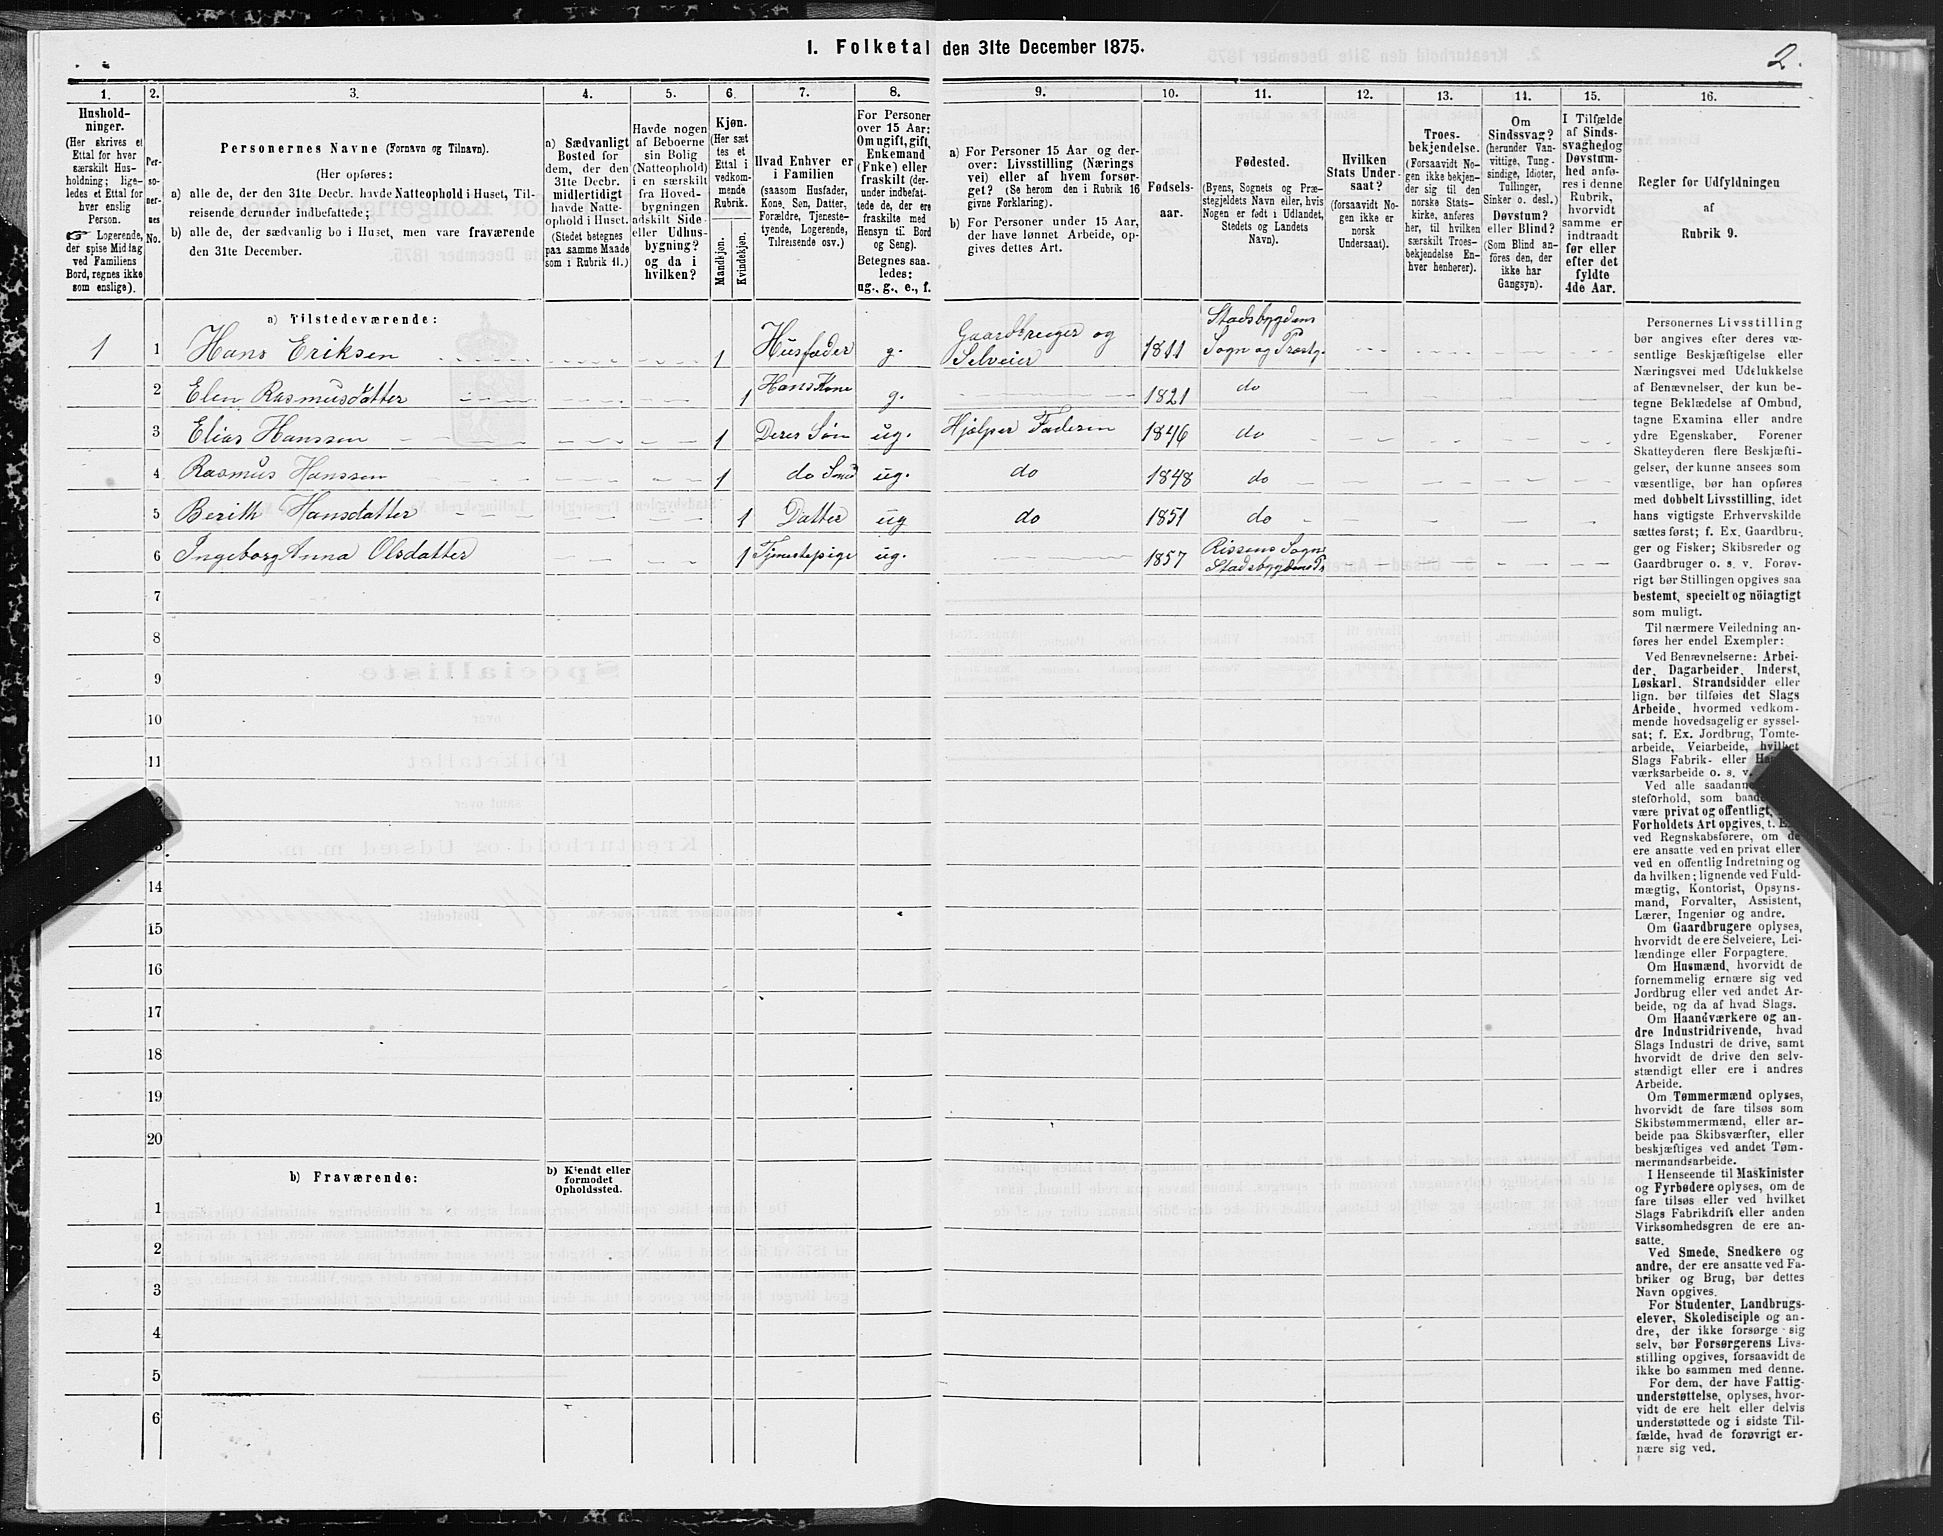 I. Folketal den 31te December 1875.
2.
1.
2.
3.
4.
5.
6.
7.
8.
9.
10.
11.
12.
13.
14.
15.
16.
Hushold-
ninger.
(Her skrives et
Ettal for hver
særskilt Hus-
holdning; lige-
ledes et Ettal for
hver enslig
Person.
☞ Logerende,
der spise Middag
ved Familiens
Bord, regnes ikke
som enslige).
Per-
so-
ner-
nes
No.
Personernes Navne (Fornavn og Tilnavn).
(Her opføres:
a) alle de, der den 31te Decbr. havde Natteophold i Huset, Til-
reisende derunder indbefattede;
b) alle de, der sædvanlig bo i Huset, men vare fraværende
den 31te December.
a) Sædvanligt
Bosted for
dem, der den
31te Decbr.
midlertidigt
havde Natte-
ophold i Huset.
(Stedet betegnes
paa samme Maade
som i Rubrik 11.)
Havde nogen
af Beboerne
sin Bolig
(Natteophold)
i en særskilt
fra Hoved-
bygningen
adskilt Side-
eller Udhus-
bygning?
og da i
hvilken?
Kjøn.
(Her sæt
tes et
Ettal i
vedkom-
mende
Rubrik.
Mandkjøn.
Kvindekjøn.
Hvad Enhver er
i Familien
(saasom Husfader,
Kone, Søn, Datter,
Forældre, Tjeneste-
tyende, Logerende,
Tilreisende osv.)
For Personer
over 15 Aar:
Om ugift, gift,
Enkemand
(Enke) eller
fraskilt (der-
under indbefat-
tede de, der ere
fraskilte med
Hensyn til Bord
og Seng).
Betegnes saa-
ledes:
ug., g., e., f.
a) For Personer 15 Aar og der-
over: Livsstilling (Nærings
vei) eller af hvem forsør-
get? (Se herom den i Rubrik 16
givne Forklaring).
b) For Personer under 15 Aar,
der have lønnet Arbeide, op-
gives dettes Art.
Fødsels-
aar.
Fødested.
(Byens, Sognets og Præ-
stegjeldets Navn eller, hvis
Nogen er født i Udlandet,
Stedets og Landets
Navn).
Hvilken
Stats Under-
saat?
(forsaavidt No-
gen ikke er
norsk
Undersaat).
Troes-
bekjendelse.
(Forsaavidt No-
gen ikke bekjen-
der sig til den
norske Stats-
kirke, anføres
her, til hvilken
særskilt Troes-
bekjendelse En-
hver henhører).
Om
Sindssvag?
(herunder Van-
vittige, Tung-
sindige, Idioter,
Tullinger,
Sinker o. desl.)
Døvstum?
eller Blind?
(Som Blind an-
føres den, der
ikke har
Gangsyn).
I Tilfælde
af Sinds-
svaghed og
Døvstum-
hed anfø-
res i denne
Rubrik,
hvorvidt
samme er
indtraadt
før eller
efter det
fyldte
4de Aar.
Regler for Udfyldningen
af
Rubrik 9.
a) Tilstedeværende:
1 1 Hans Eriksen 1 Husfader g. Gaardbruger og Selveier 1811 Stadsbygdens Sogn og Præstg.
2 Elen Rasmusdatter 1 Hans Kone g. 1821 do
3 Elias Hanssen 1 Deres Søn ug. Hjælper Faderen 1846 do
4 Rasmus Hanssen 1 do ug. do 1848 do
5 Berith Hansdatter 1 Datter ug do 1851 do
6 Ingeborg Anna Olsdatter 1 Tjenestepige ug. 1857 Rissens Sogn
7
8
9
10
11
14
15
16
17
18
19
20
b) Fraværende:
b) Kjendt eller
formodet
Opholdssted.
1
2
3
4
5
6
Personernes Livsstilling
bør angives efter deres væ-
sentlige Beskjæftigelse eller
Næringsvei med Udelukkelse
af Benævnelser, der kun be-
tegne Beklædelse af Ombud,
tagne Examina eller andre
ydre Egenskaber. Forener
Skatteyderen flere Beskjæfti-
gelser, der kunne ansees som
væsentlige, bør han opføres
med dobbelt Livsstilling, idet
hans vigtigste Erhvervskilde
sættes først; f. Ex. Gaardbru-
ger og Fisker; Skibsreder og
Gaardbruger o. s. v. Forøv-
rigt bør Stillingen opgives saa
bestemt, specielt og nöiagtigt
som muligt.
Til nærmere Veiledning an-
føres her endel Exempler:
Ved Benævnelserne: Arbei-
der, Dagarbeider, Inderst,
Løskarl, Strandsidder eller
lign. bør tilføies det Slags
Arbeide, hvormed vedkom-
mende hovedsagelig er syssel-
sat; f. Ex. Jordbrug, Tomte-
arbeide, Veiarbeide, hvilket
Slags Fabrik- eller
værksarbeide o. s. v.
Ved alle saadanne
steforhold, som
være privat og offentligt,
Forholdets Art opgives, t. Ex.
ved Regnskabsførere, om de
ere ansatte ved en privat eller
ved en offentlig Indretning og
da hvilken; lignende ved Fuld-
mægtig, Kontorist, Opsyns-
mand, Forvalter, Assistent,
Lærer, Ingeniør og andre.
Om Gaardbrugere oplyses,
hvorvidt de ere Selveiere, Lei-
lændinge eller Forpagtere.
Om Husmænd, hvorvidt de
fornemmelig ernære sig ved
Jordbrug eller ved andet Ar-
beide, og da af hvad Slags.
Om Haandværkere og an-
dre Industridrivende, hvad
Slags Industri de drive, samt
hvorvidt de drive den selv-
stændigt eller ere i andres
Arbeide.
Om Tømmermænd oplyses,
hvorvidt de fare tilsøs som
Skibstømmermænd, eller ar-
beide paa Skibsværfter, eller
beskjæftiges ved andet Tøm-
mermandsarbeide.
I Henseende til Maskinister
og Fyrbødere oplyses, om de
fare tilsøs eller ved hvilket
Slags Fabrikdrift eller anden
Virksomhedsgren de ere an-
satte.
Ved Smede, Snedkere og
andre, der ere ansatte ved Fa-
briker og Brug, bør dettes
Navn opgives.
For Studenter, Landbrugs-
elever, Skoledisciple og an-
dre, der ikke forsørge sig
selv, bør Forsørgerens Livs-
stilling opgives, forsaavidt de
ikke bo sammen med denne.
For dem, der have Fattig-
understøttelse, oplyses, hvor-
vidt de ere helt eller delvis
understøttede og i sidste Til-
fælde, hvad de forøvrigt er-
nære sig ved.